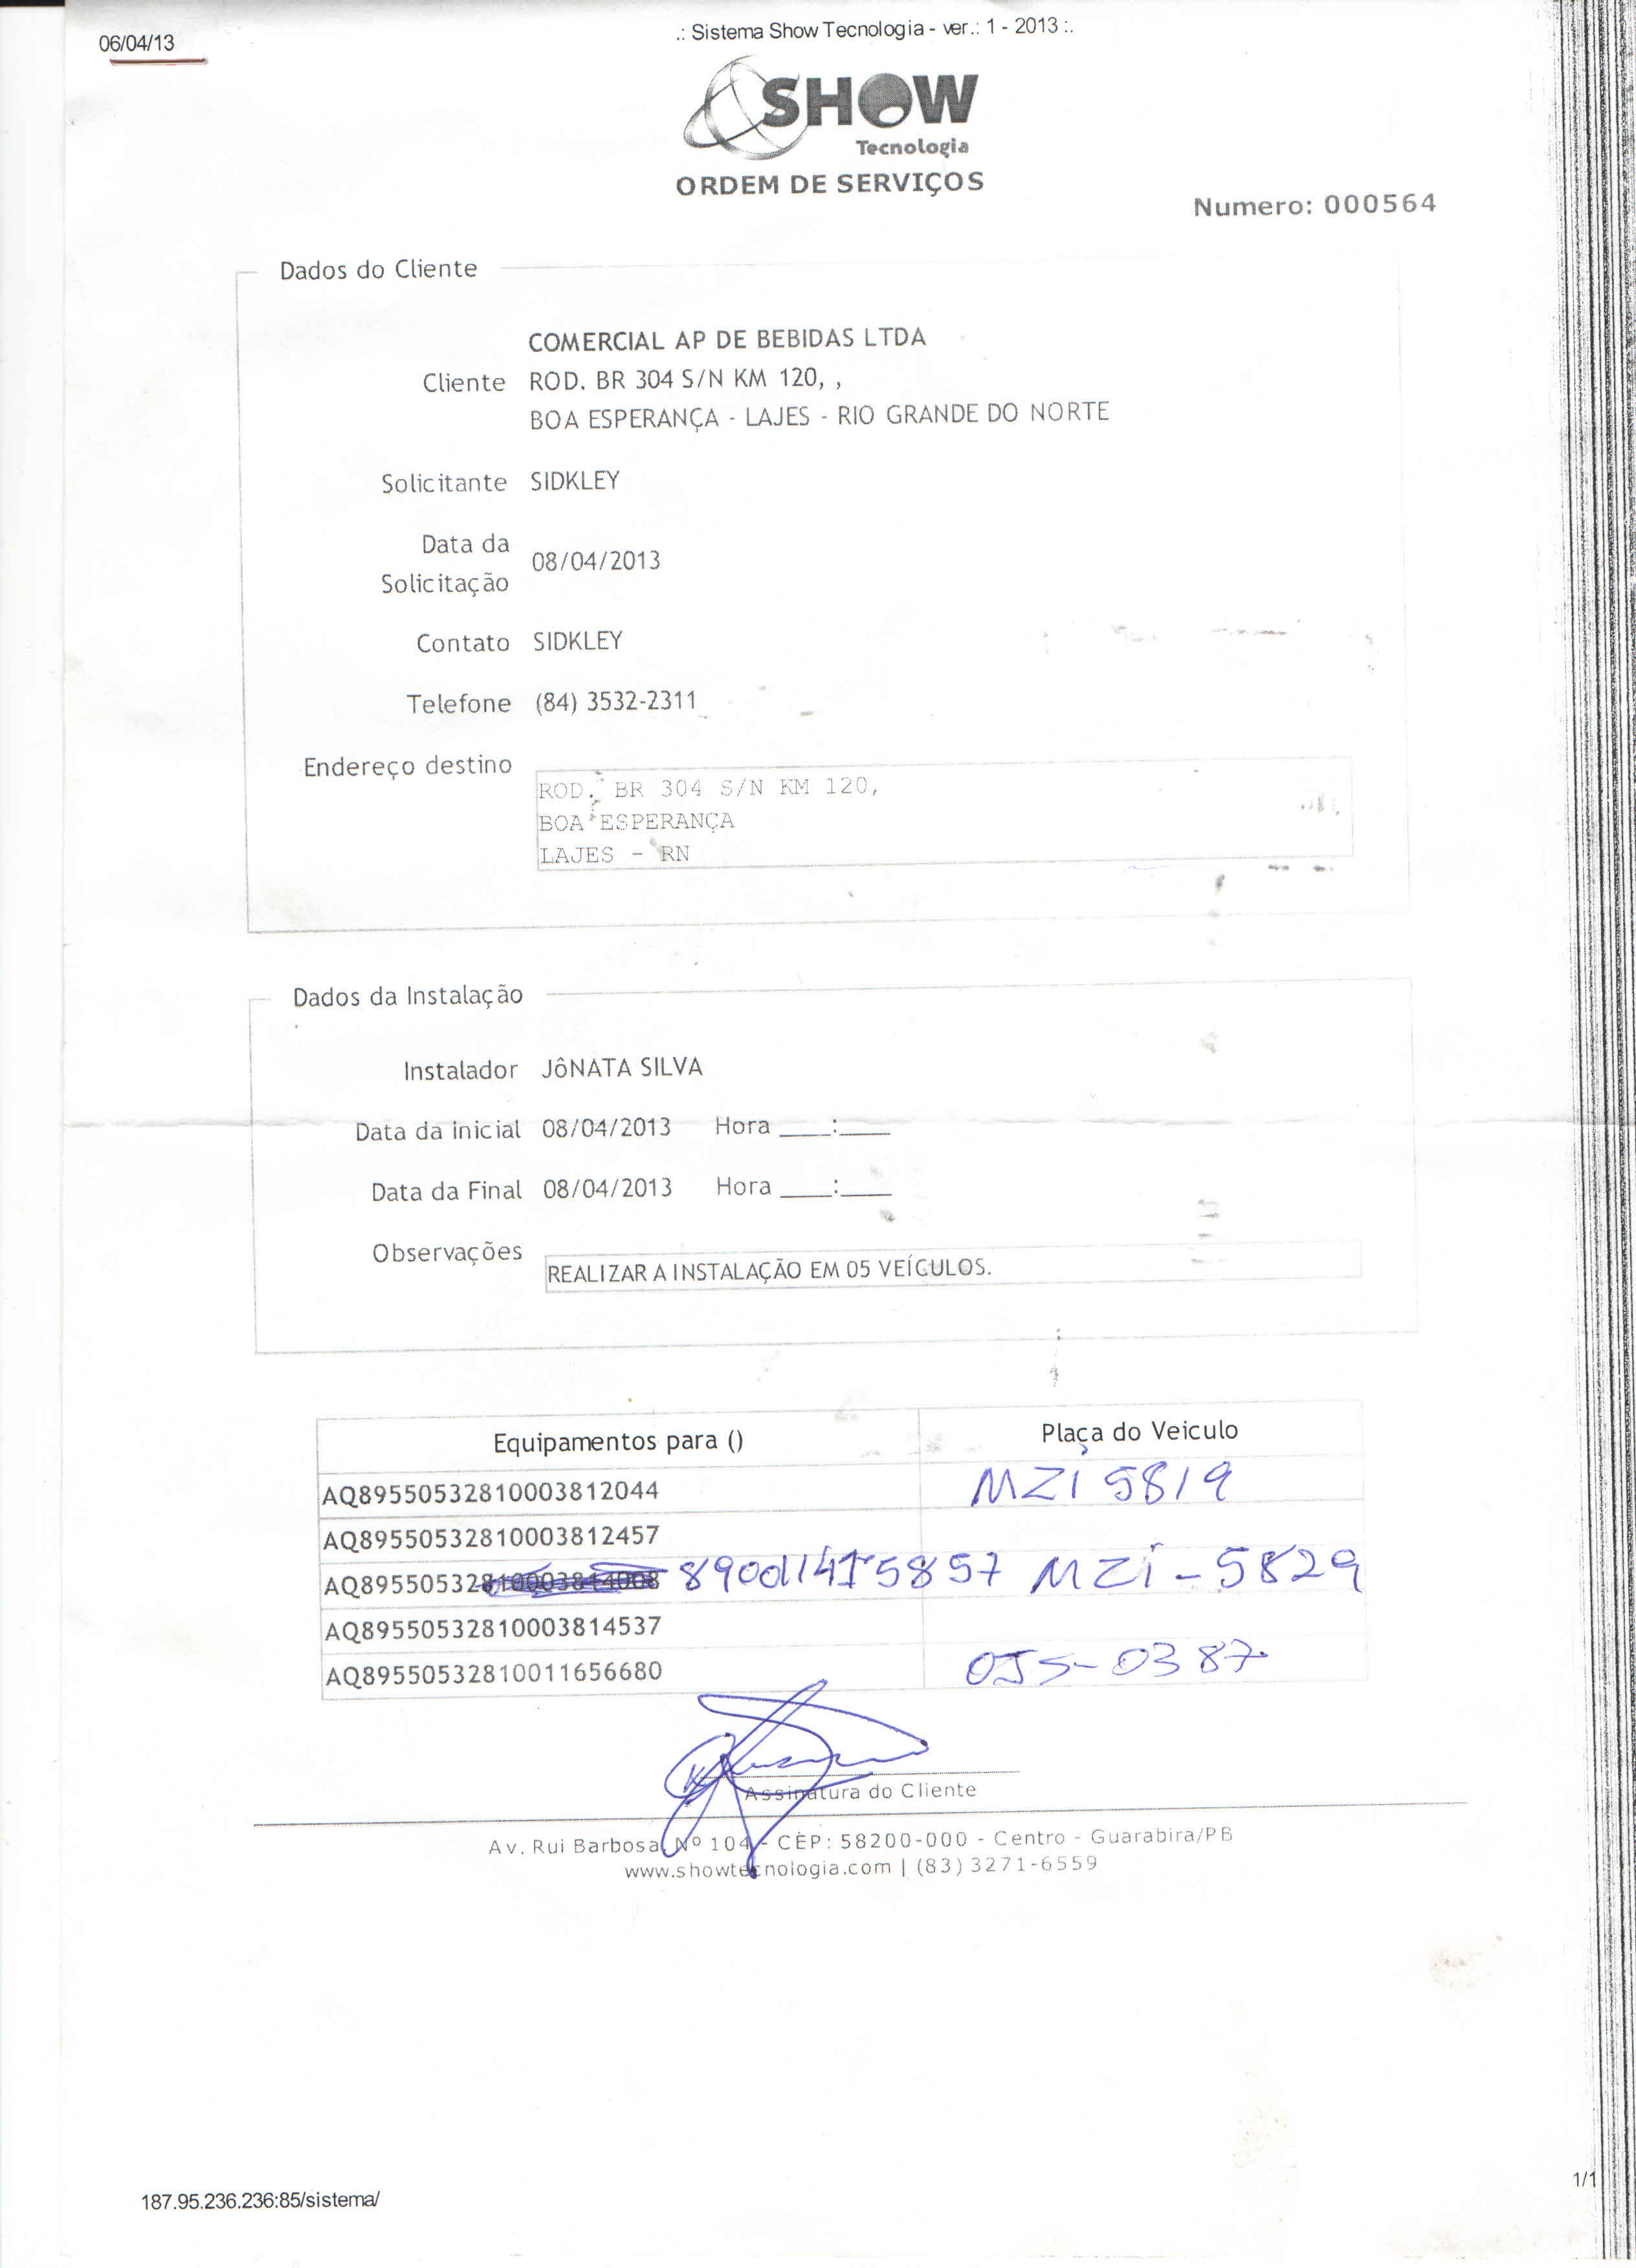 06/04/13
.: Sistema Show Tecnologia - ver.: 1 - 2013 :.
SHOW
Tecnologia
ORDEM DE SERVIÇOS
Numero: 000564
Dados do Cliente
COMERCIAL AP DE BEBIDAS LTDA
Cliente ROD. BR 304 S/N KM 120, ,
BOA ESPERANÇA - LAJES - RIO GRANDE DO NORTE
Solicitante SIDKLEY
Data da
Solicitação 08/04/2013
Contato SIDKLEY
Telefone (84) 3532-2311
Endereço destino
ROD. BR 304 S/N KM 120,
BOA ESPERANÇA
LAJES - RN
Dados da Instalação
Instalador JôNATA SILVA
Data da inicial 08/04/2013 Hora ___:___
Data da Final 08/04/2013 Hora ___:___
Observações
REALIZAR A INSTALAÇÃO EM 05 VEÍCULOS.
Equipamentos para () Plaça do Veiculo
AQ89550532810003812044 MZI 5819
AQ89550532810003812457
AQ89550532810003814008 MZi-5829
AQ89550532810003814537
AQ89550532810011656680 OJS-0387
Assinatura do Cliente
Av. Rui Barbosa, Nº 104 - CEP: 58200-000 - Centro - Guarabira/PB
www.showtecnologia.com | (83) 3271-6559
187.95.236.236:85/sistema/
1/1